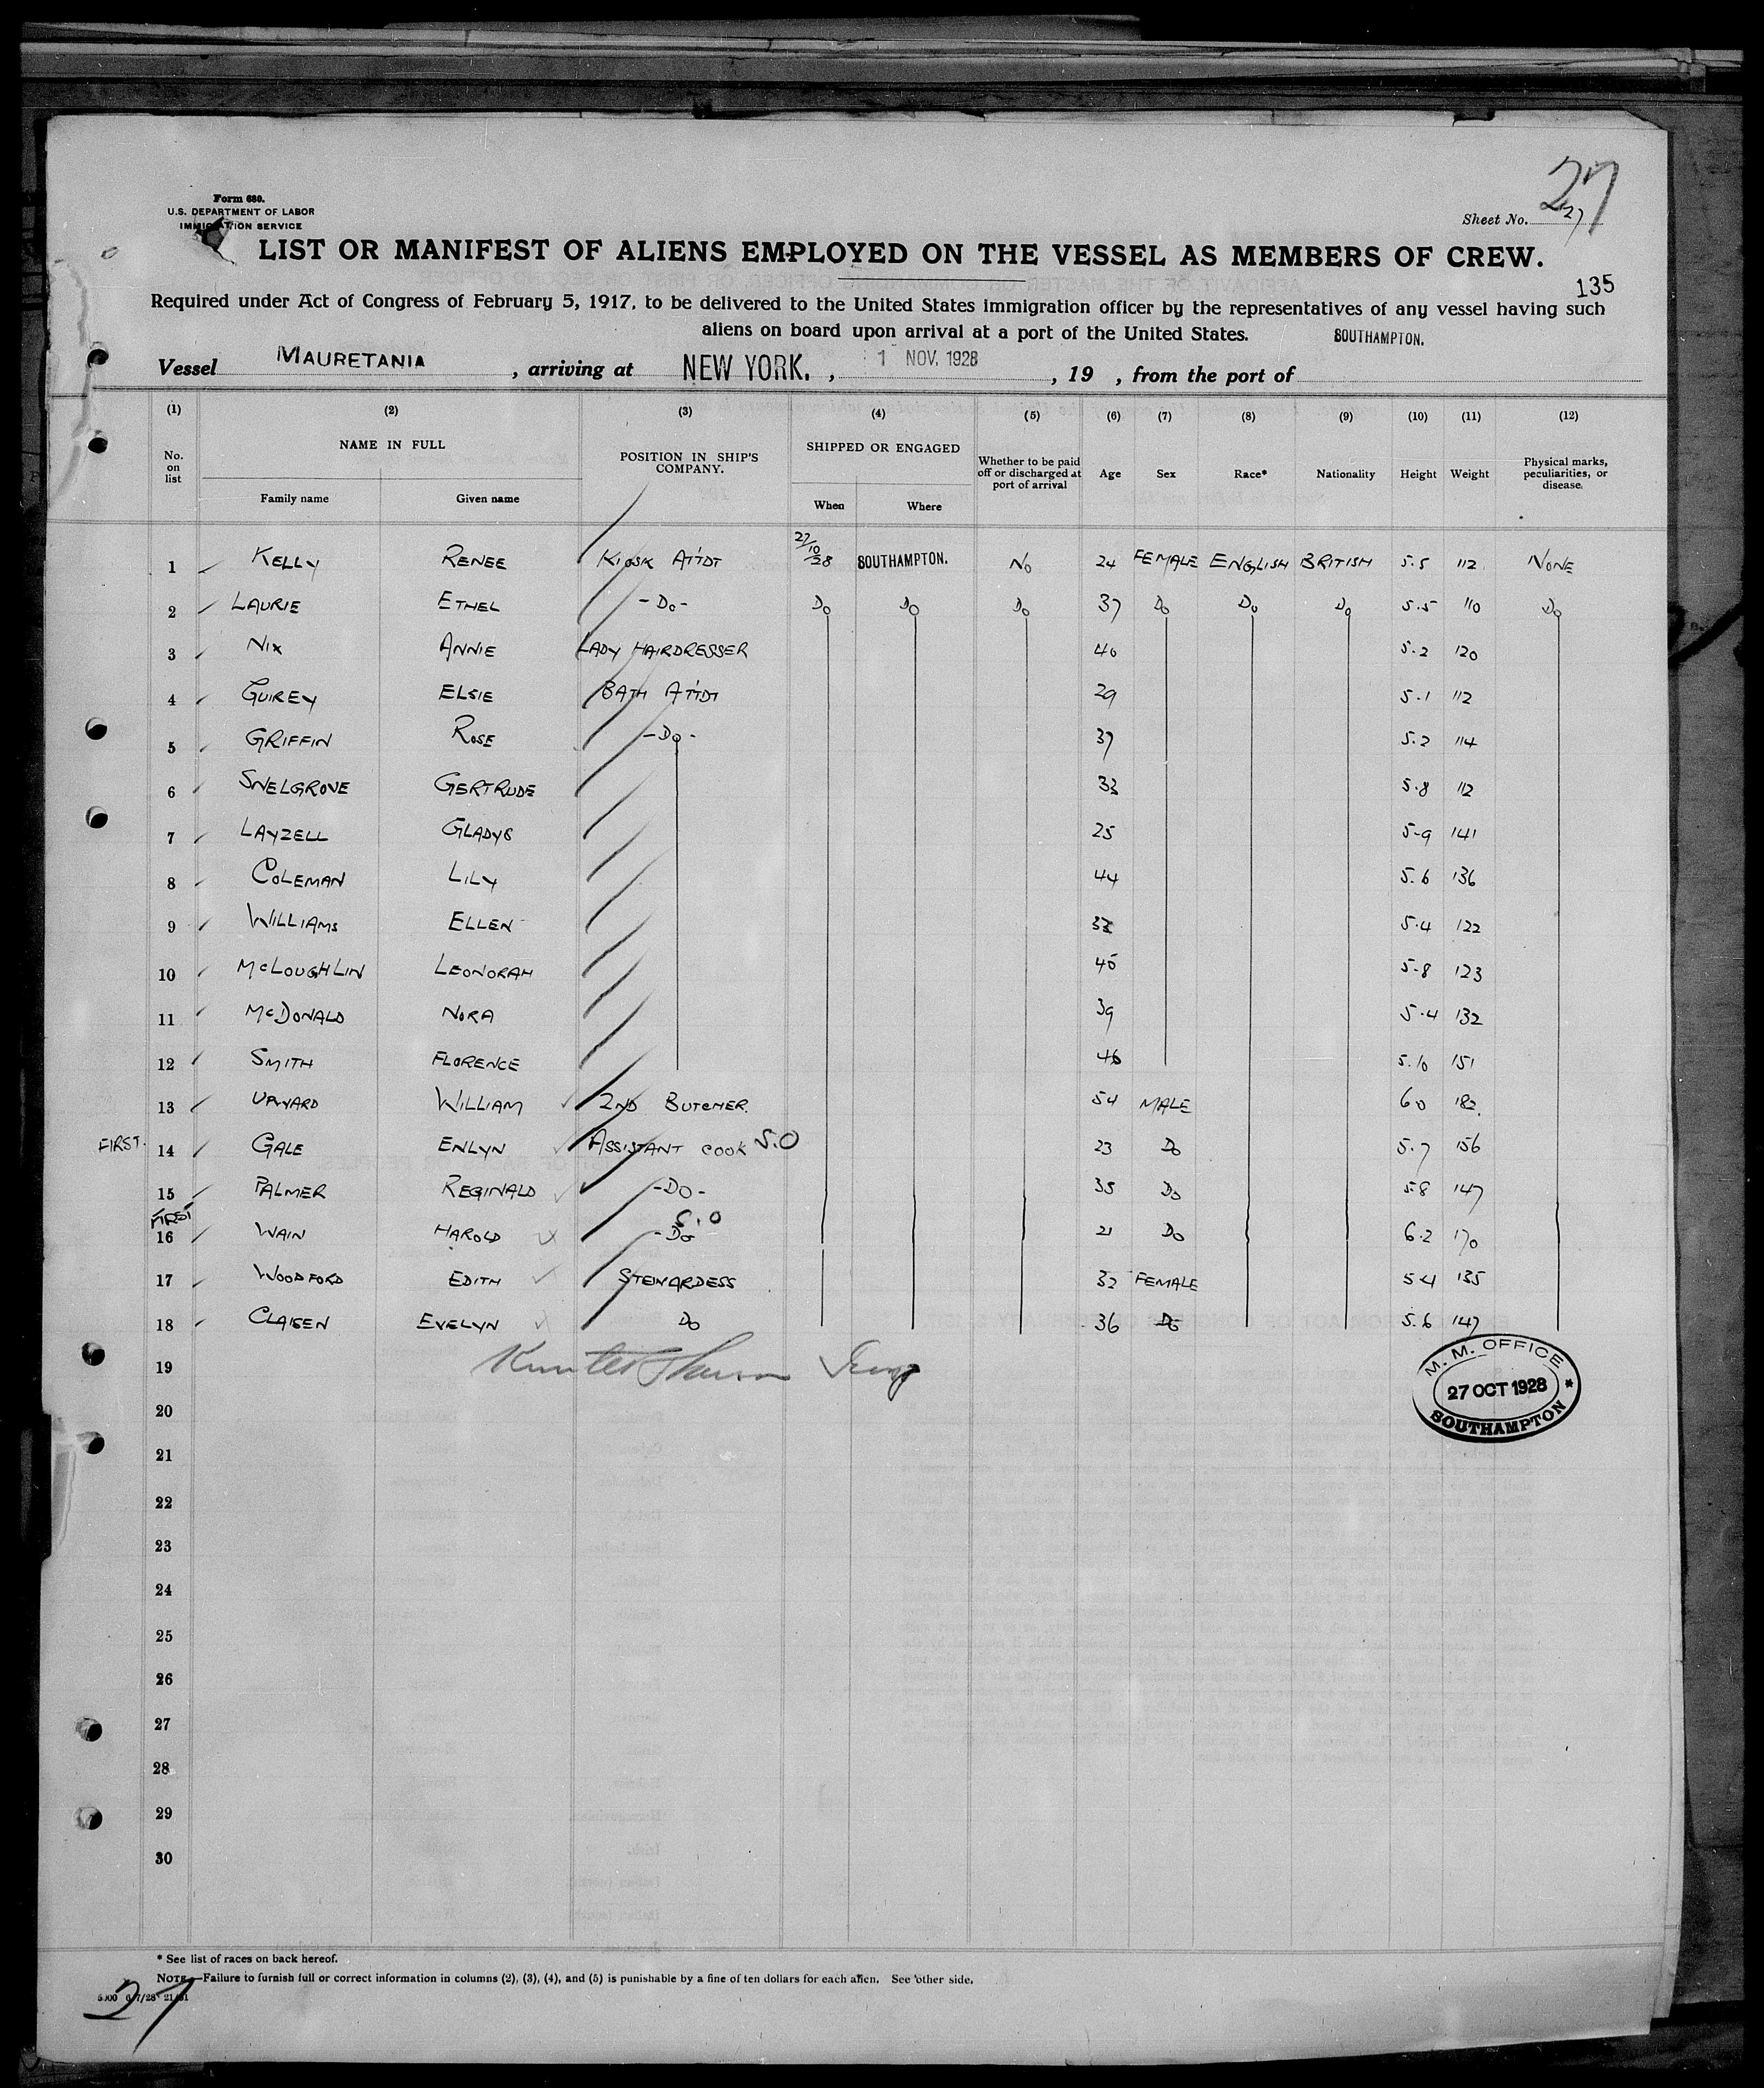 27
Form 680.
U.S. DEPARTMENT OF LABOR
IMMIGRATION SERVICE
Sheet No. 27
LIST OR MANIFEST OF ALIENS EMPLOYED ON THE VESSEL AS MEMBERS OF CREW.
135
Required under Act of Congress of February 5, 1917, to be delivered to the United States immigration officer by the representatives of any vessel having such
aliens on board upon arrival at a port of the United States.
SOUTHAMPTON.
Vessel MAURETANIA, arriving at NEW YORK., 1 NOV. 1928, 19 , from the port of
(1) (2) (3) (4) (5) (6) (7) (8) (9) (10) (11) (12)
No. on list NAME IN FULL Family name Given name POSITION IN SHIP'S COMPANY. SHIPPED OR ENGAGED When Where Whether to be paid off or discharged at port of arrival Age Sex Race* Nationality Height Weight Physical marks, peculiarities, or disease.
1 KELLY RENEE KIOSK ATTDT 27/10/28 SOUTHAMPTON. NO 24 FEMALE ENGLISH BRITISH 5.5 112 NONE
2 LAURIE ETHEL -DO- DO DO DO 37 DO DO DO 5.5 110 DO
3 NIX ANNIE LADY HAIRDRESSER 40 5.2 120
4 GUIREY ELSIE BATH ATTDT 29 5.1 112
5 GRIFFIN ROSE -DO- 37 5.2 114
6 SNELGROVE GERTRUDE 33 5.8 112
7 LAYZELL GLADYS 25 5-9 141
8 COLEMAN LILY 44 5.6 136
9 WILLIAMS ELLEN 5.4 122
10 MCLOUGHLIN LEONORAH 45 5-8 123
11 MCDONALD NORA 39 5.4 132
12 SMITH FLORENCE 46 5.10 151
13 UPWARD WILLIAM 2ND BUTCHER. 54 MALE 6 0 182.
FIRST. 14 GALE ENLYN ASSISTANT COOK S.O 23 DO 5.7 156
15 PALMER REGINALD -DO- 35 DO 5.8 147
FIRST 16 WAIN HAROLD -DO S.O 21 DO 6.2 170
17 WOODFORD EDITH STEWARDESS 32 FEMALE 5.4 135
18 CLAISEN EVELYN DO 36 DO 5.6 147
19
M. M. OFFICE
27 OCT 1928
SOUTHAMPTON
20
21
22
23
24
25
26
27
28
29
30
* See list of races on back hereof.
NOTE.—Failure to furnish full or correct information in columns (2), (3), (4), and (5) is punishable by a fine of ten dollars for each alien. See other side.
27